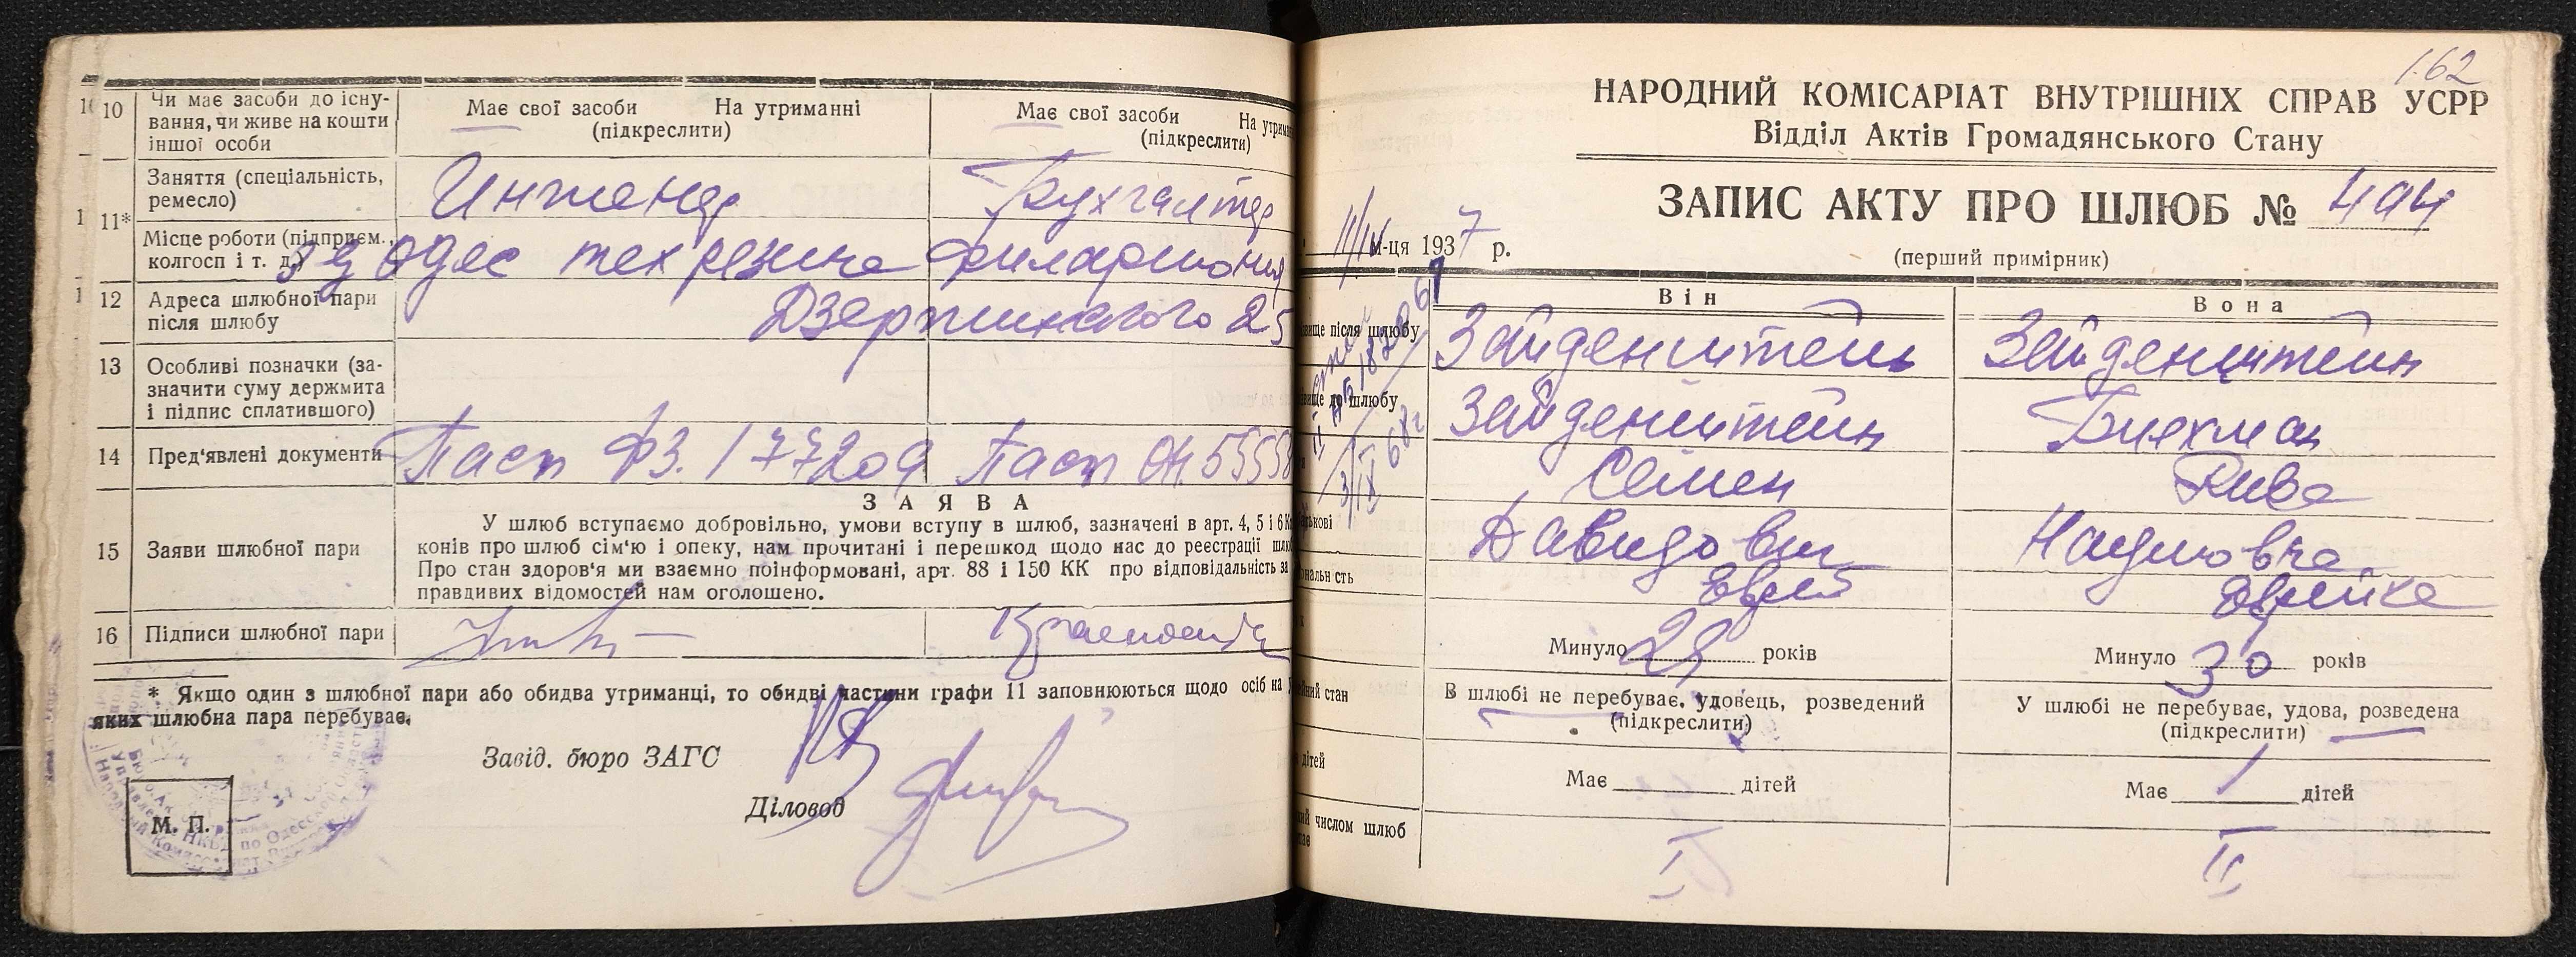 10 Чи має засоби до існу-
вання, чи живе на кошти
іншої особи
Має свої засоби На утриманні
(підкреслити)
Має свої засоби На утриман
(підкреслити)
11* Заняття (спеціальність,
ремесло)
Инженер
Бухгалтер
Місце роботи (підприєм.,
колгосп і т. д.)
Одес техрезина
Филармония
12 Адреса шлюбної пари
після шлюбу
Дзержинского 25
13 Особливі позначки (за-
значити суму держмита
і підпис сплатившого)
14 Пред'явлені документи
Пасп ФЗ. 177209
Пасп ОН.
15 Заяви шлюбної пари
ЗАЯВА
У шлюб вступаємо добровільно, умови вступу в шлюб, зазначені в арт. 4, 5 і 6 Ко
конів про шлюб сім'ю і опеку, нам прочитані і перешкод щодо нас до реєстрації шлю
Про стан здоров'я ми взаємно поінформовані, арт. 88 і 150 КК про відповідальність за
правдивих відомостей нам оголошено.
16 Підписи шлюбної пари
* Якщо один з шлюбної пари або обидва утриманці, то обидві частини графи 11 заповнюються щодо осіб на
яких шлюбна пара перебуває.
Завід. бюро ЗАГС
Діловод
М. П.
162
НАРОДНИЙ КОМІСАРІАТ ВНУТРІШНІХ СПРАВ УСРР
Відділ Актів Громадянського Стану
ЗАПИС АКТУ ПРО ШЛЮБ № 494
(перший примірник)
м-ця 1937 р.
Він
Вона
вище після шлюбу
Зайденштейн
Зайденштейн
вище до шлюбу
Зайденштейн
Бляхман
Семен
Рива
ькові
Давидович
Наумовна
нальн сть
Еврей
Еврейка
Минуло 29 років
Минуло 30 років
ний стан
В шлюбі не перебуває, удовець, розведений
(підкреслити)
У шлюбі не перебуває, удова, розведена
(підкреслити)
дітей
Має дітей
Має 1 дітей
числом шлюб
I
II